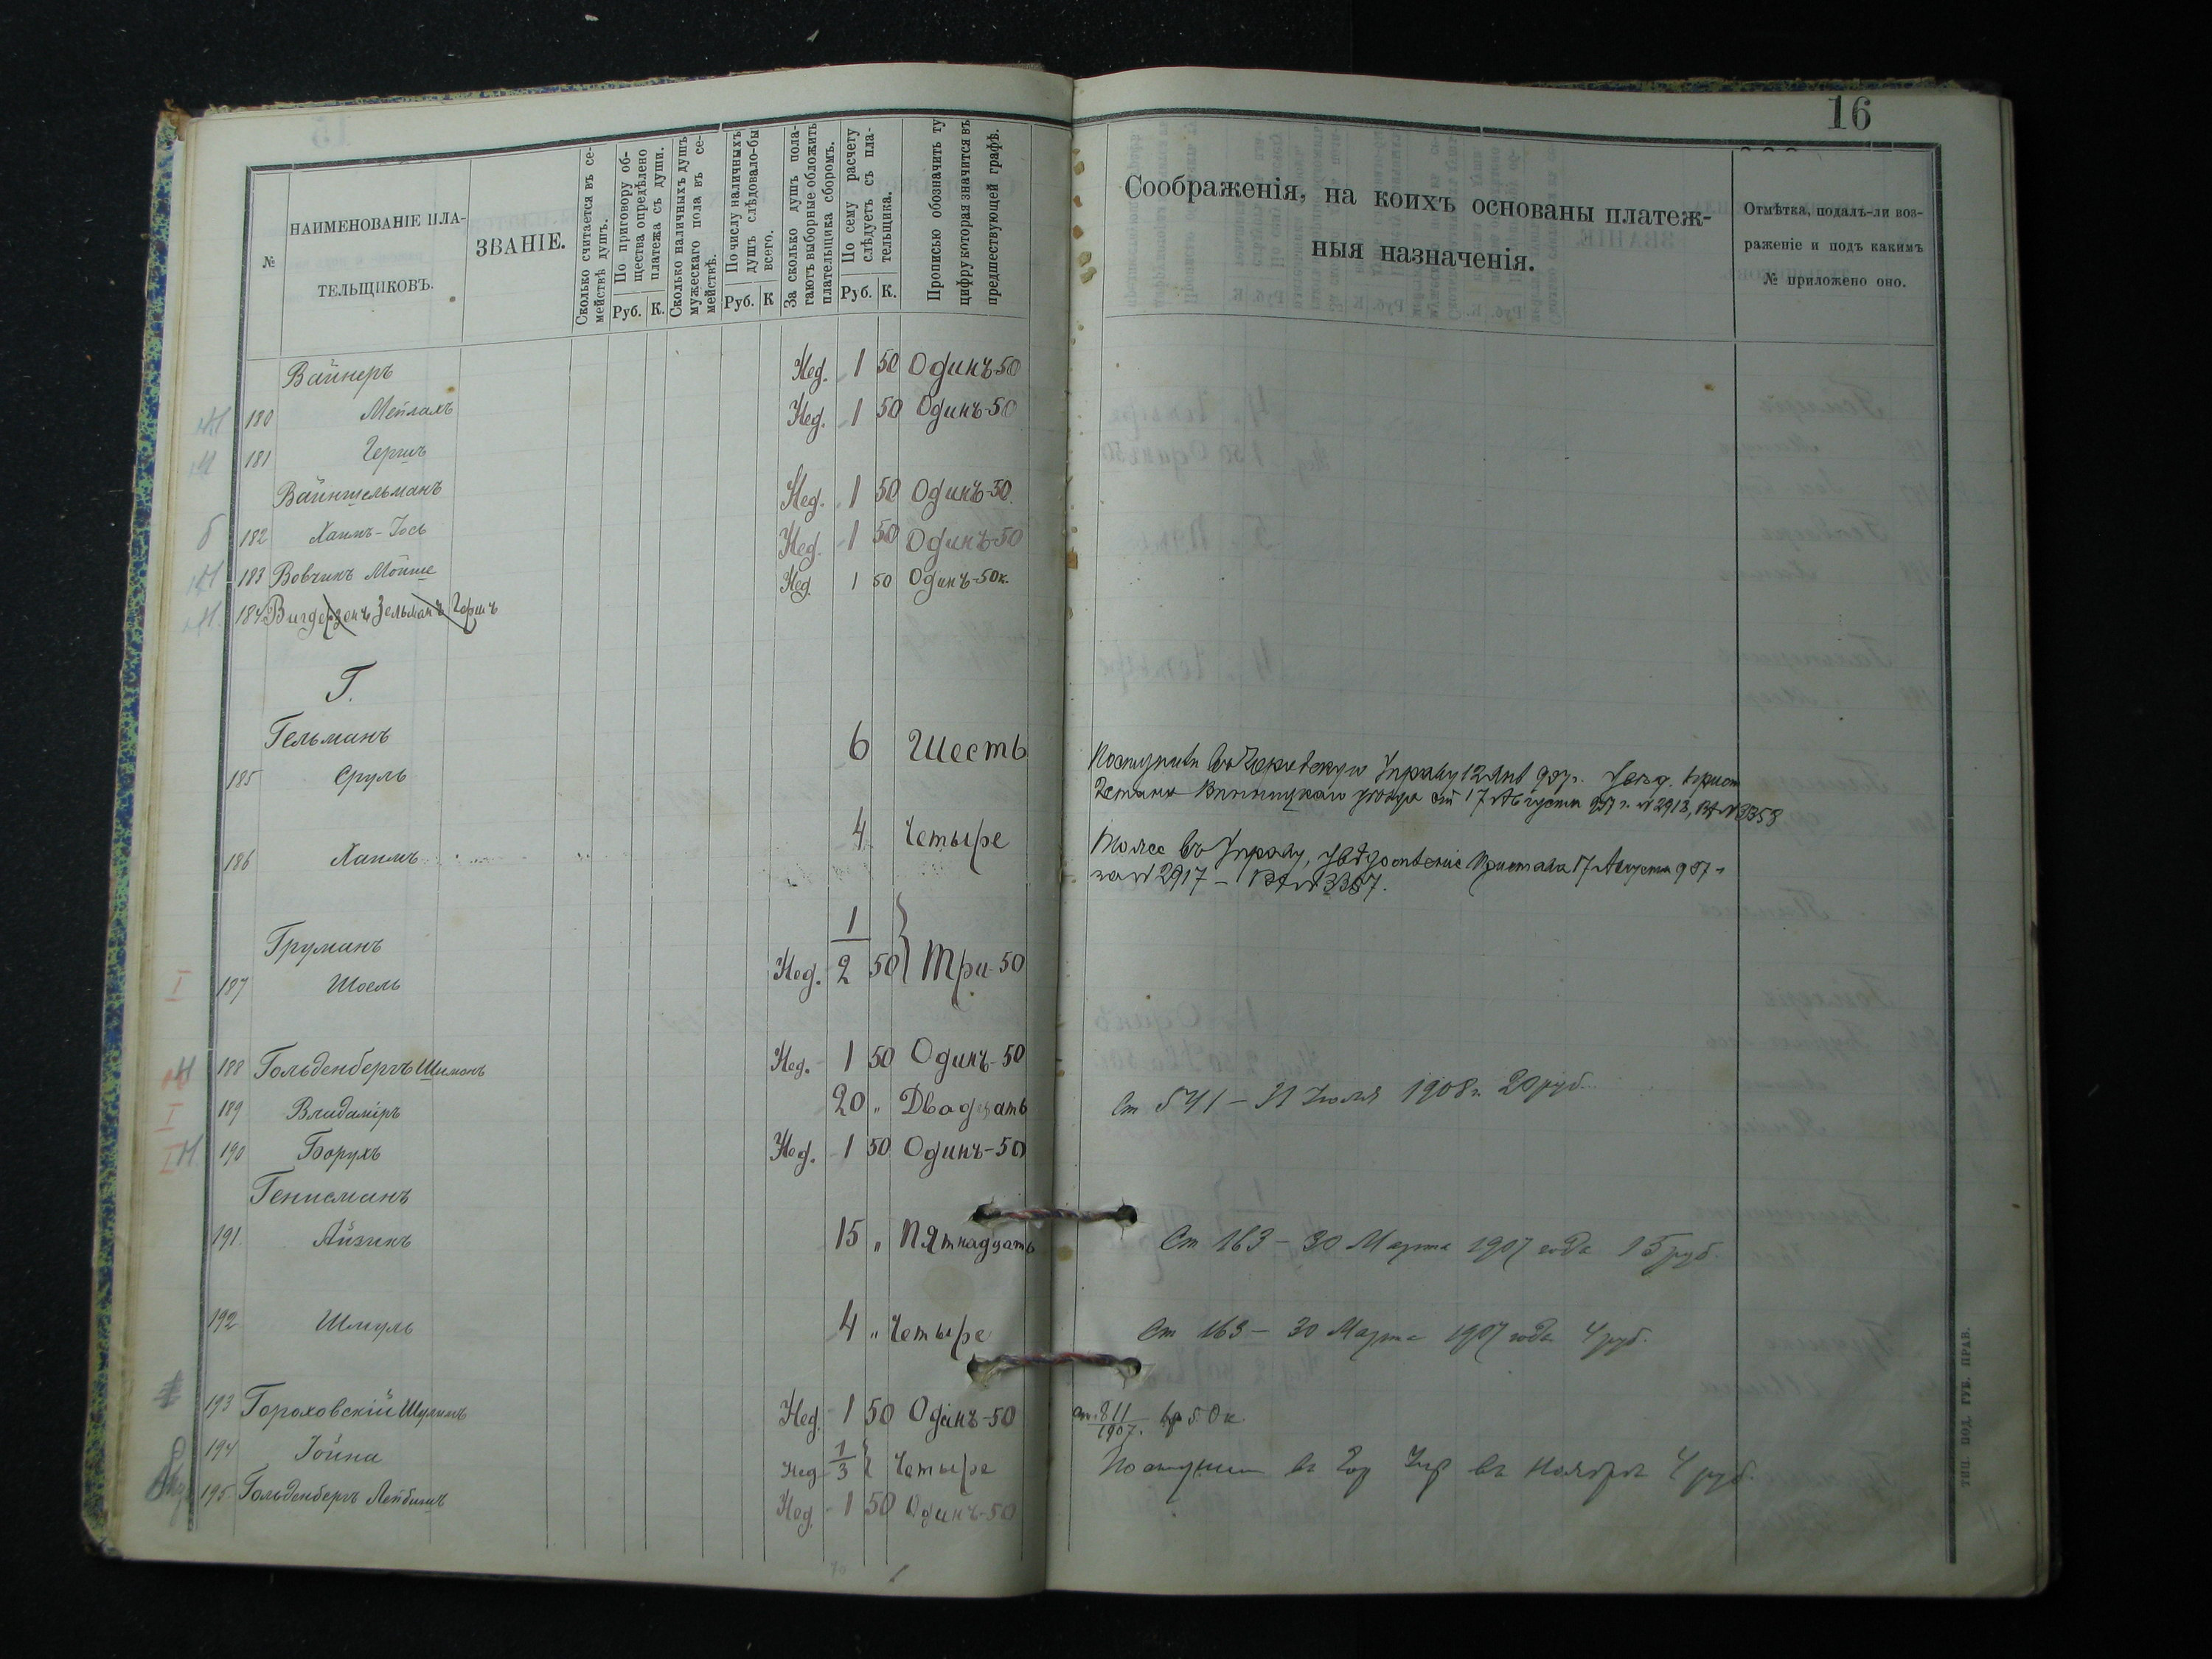 16
№
НАИМЕНОВАНІЕ ПЛА-
ТЕЛЬЩИКОВЪ.
ЗВАНІЕ.
Сколько считается въ се-
мействѣ душъ.
По приговору об-
щества опредѣлено
платежа съ души.
Руб. К.
Сколько наличныхъ душъ
мужескаго пола въ се-
мействѣ.
По числу наличныхъ
душъ слѣдовало-бы
всего.
Руб. К
За сколько душъ пола-
гаютъ выборные обложить
плательщика сборомъ.
По сему расчету
слѣдуетъ съ пла-
тельщика.
Руб. К.
Прописью обозначить ту
цифру которая значится въ
предшествующей графѣ.
Соображенія, на коихъ основаны платеж-
ныя назначенія.
Отмѣтка, подалъ-ли воз-
раженіе и подъ какимъ
№ приложено оно.
Вайнеръ Нед. 1 50 Одинъ-50
180 Мейлахъ Нед. 1 50 Одинъ-50
181 Гершъ
Вайншельманъ Нед. 1 50 Одинъ-50.
182 Хаимъ-Іось Нед. 1 50 Одинъ-50
183 Вовчикъ Мойше Нед 1 50 Одинъ-50к.
184 Вигдерзенъ Зельманъ Гершъ
Г.
Гельманъ 6 Шесть
185 Сруль
Поступили въ Городскую Управу 12 Янв 907г.
17 Августа 907 г. №2913, №3358
4 Четыре
186 Хаимъ
Тоже въ Управу, Пристава 17 Августа 907 г
за №2917 - №3357.
Груманъ 1
Нед. 2 50 } Три-50
I 187 Шоель
188 Гольденбергъ Шимонъ Нед. 1 50 Одинъ-50
I 189 Владиміръ 20 " Двадцать
Ст 541 - 31 Іюля 1908г. 20 руб.
190 Борухъ Нед. 1 50 Одинъ-50
Генисманъ
191 Айзикъ 15 " Пятнадцать Ст 163 - 30 Марта 1907 года 15 руб.
192 Шмуль 4 " Четыре Ст 163 - 30 Марта 1907 года 4 руб.
193 Гороховскій Шулимъ Нед. 1 50 Одинъ-50 ст. 811/1907г.
194 Іойна Нед 1/3 } Четыре Поступили въ Гор Упр въ Ноябрѣ 4 руб.
195 Гольденбергъ Лейбишъ Нед. 1 50 Одинъ-50
ТИП. ПОД. ГУБ. ПРАВ.